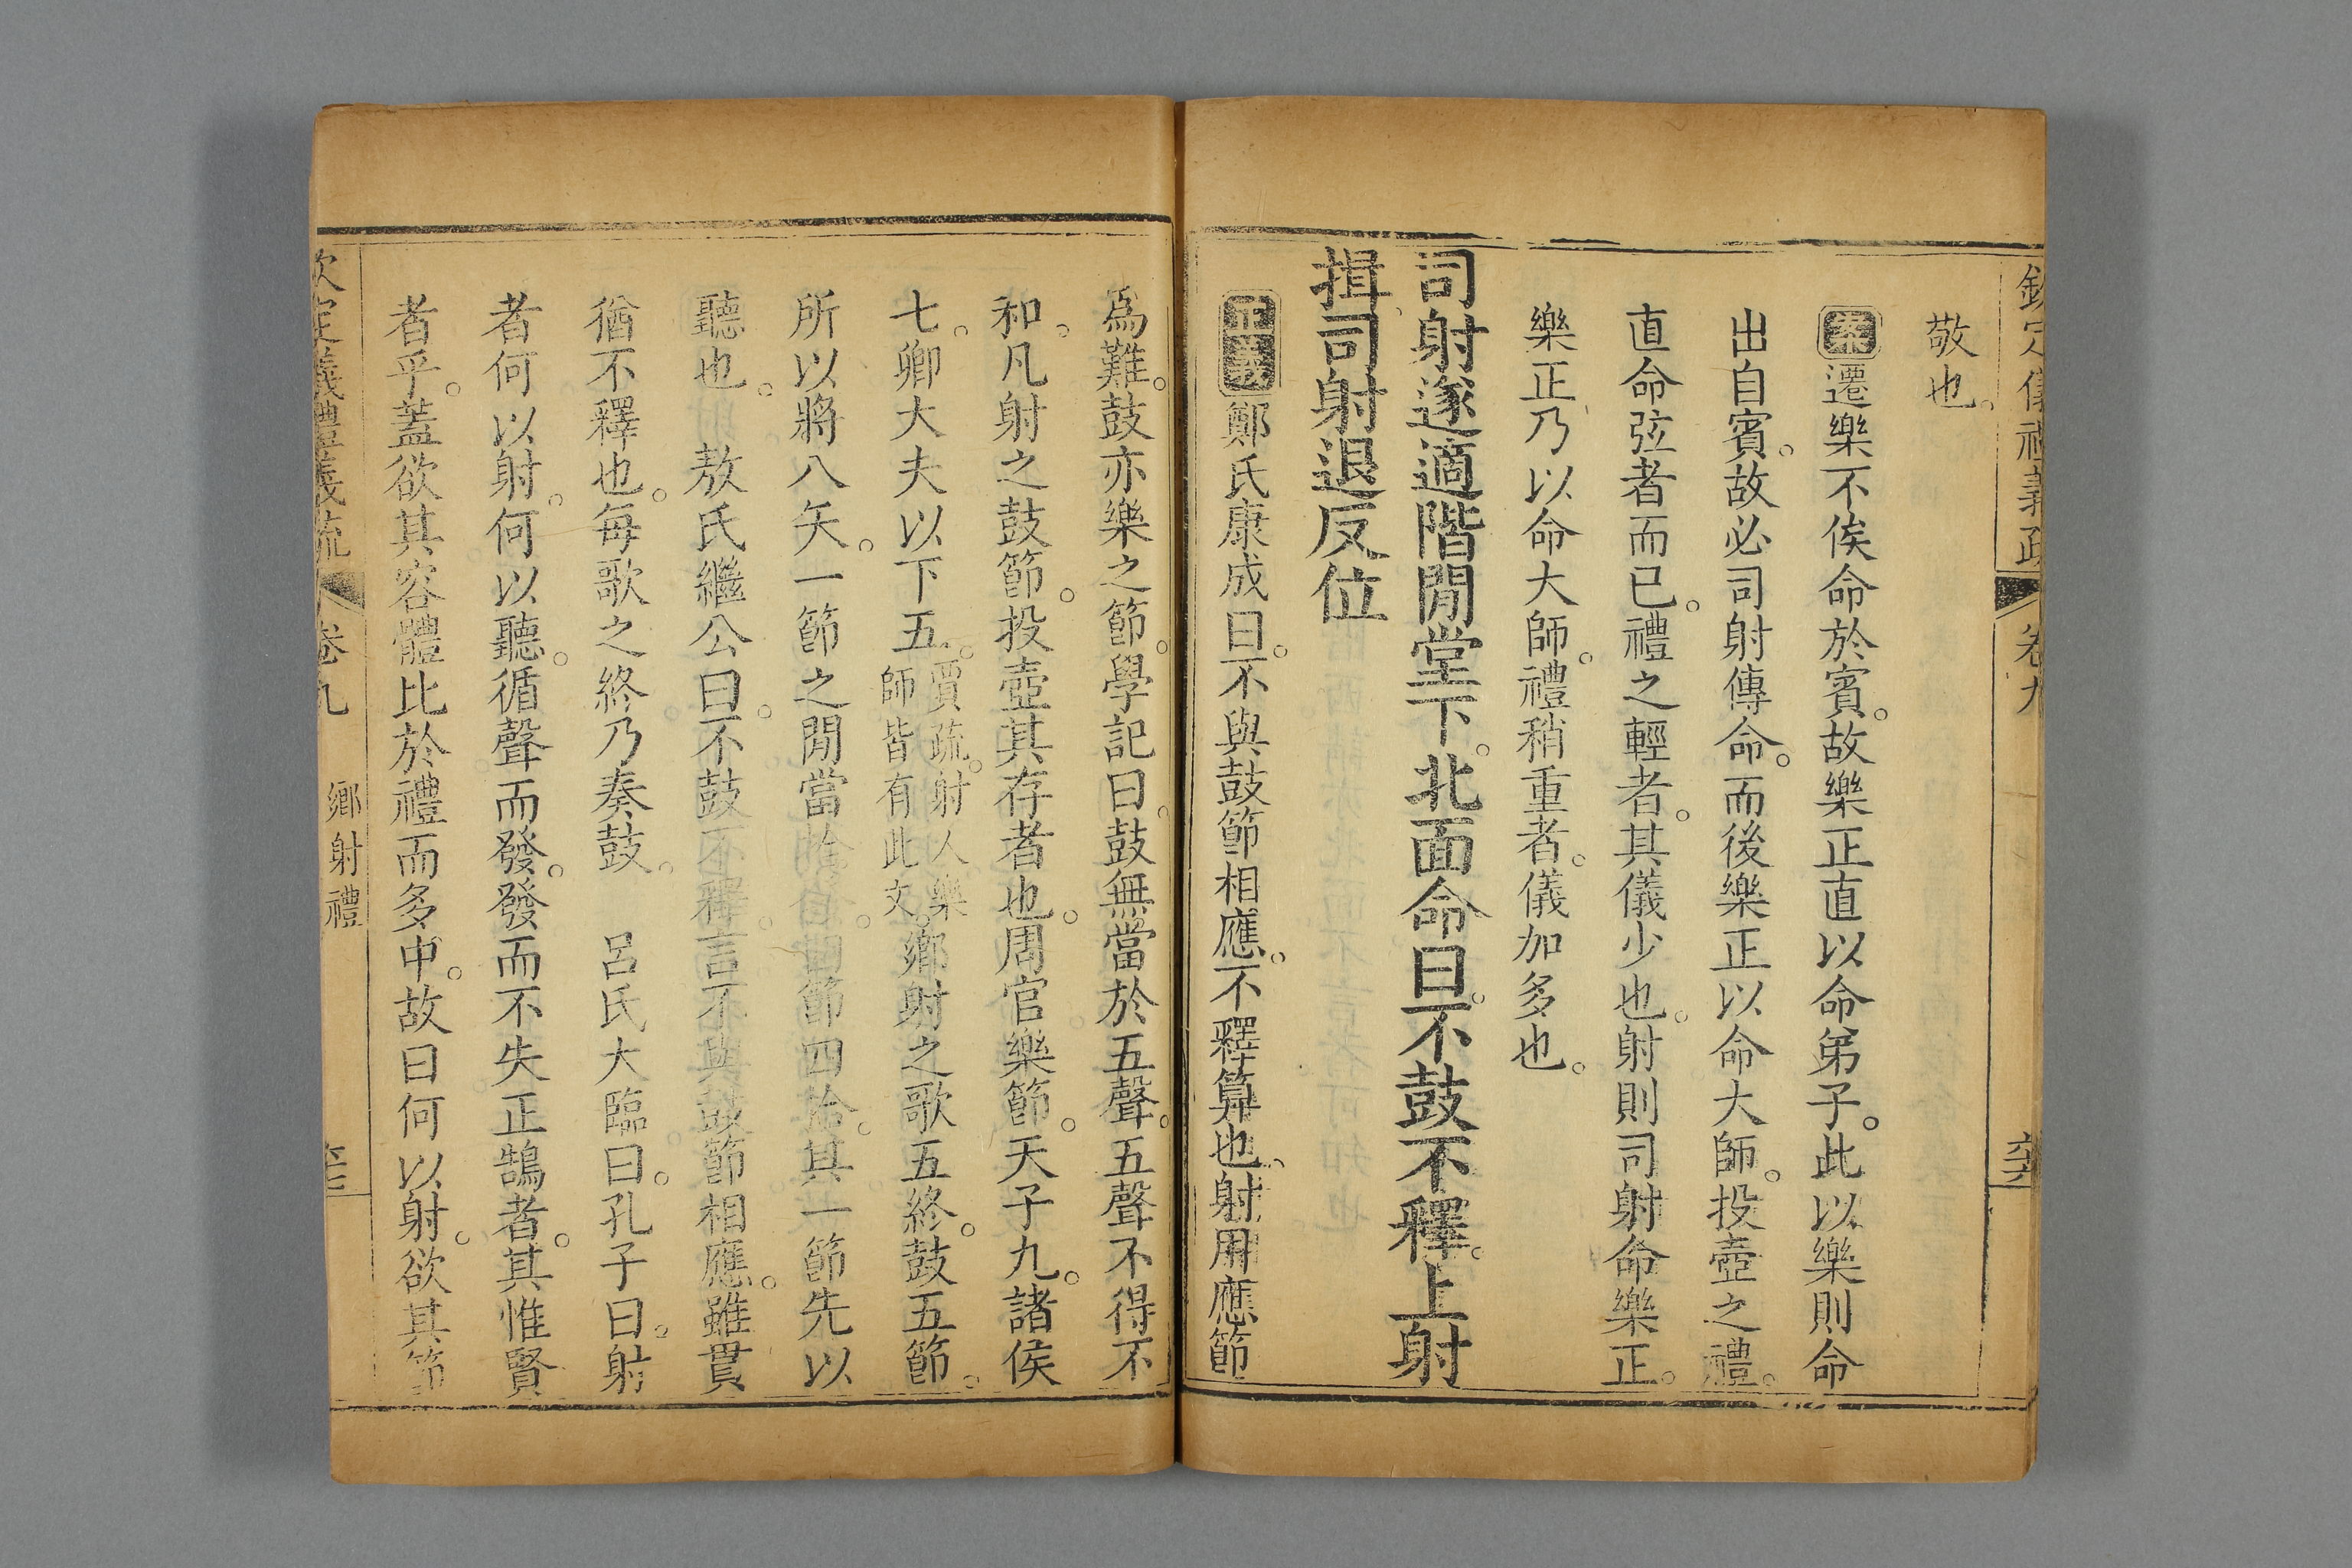 欽定儀禮義疏 卷九
敬也
案遷樂不俟命於賓故樂正直以命弟子此以樂則命
出自賓故必司射傳命而後樂正以命大師投壺之禮
直命弦者而已禮之輕者其儀少也射則司射命樂正
樂正乃以命大師禮稍重者儀加多也
司射遂適階閒堂下北面命曰不鼓不釋上射
揖司射退反位
正義鄭氏康成曰不與鼓節相應不釋算也射用應節
為難鼓亦樂之節學記曰鼓無當於五聲五聲不得不
和凡射之鼓節投壺其存者也周官樂節天子九諸侯
七卿大夫以下五賈疏射人樂師皆有此文鄉射之歌五終鼓五節
所以將八矢一節之閒當拾自四節四拾其一節先以
聽也 敖氏繼公曰不鼓不釋言不與鼓節相應雖貫
猶不釋也每歌之終乃奏鼓 呂氏大臨曰孔子曰射
者何以射何以聽循聲而發發而不失正鵠者其惟賢
者乎蓋欲其容體比於禮而多中故曰何以射欲其節
欽定儀禮義疏 卷九 鄉射禮